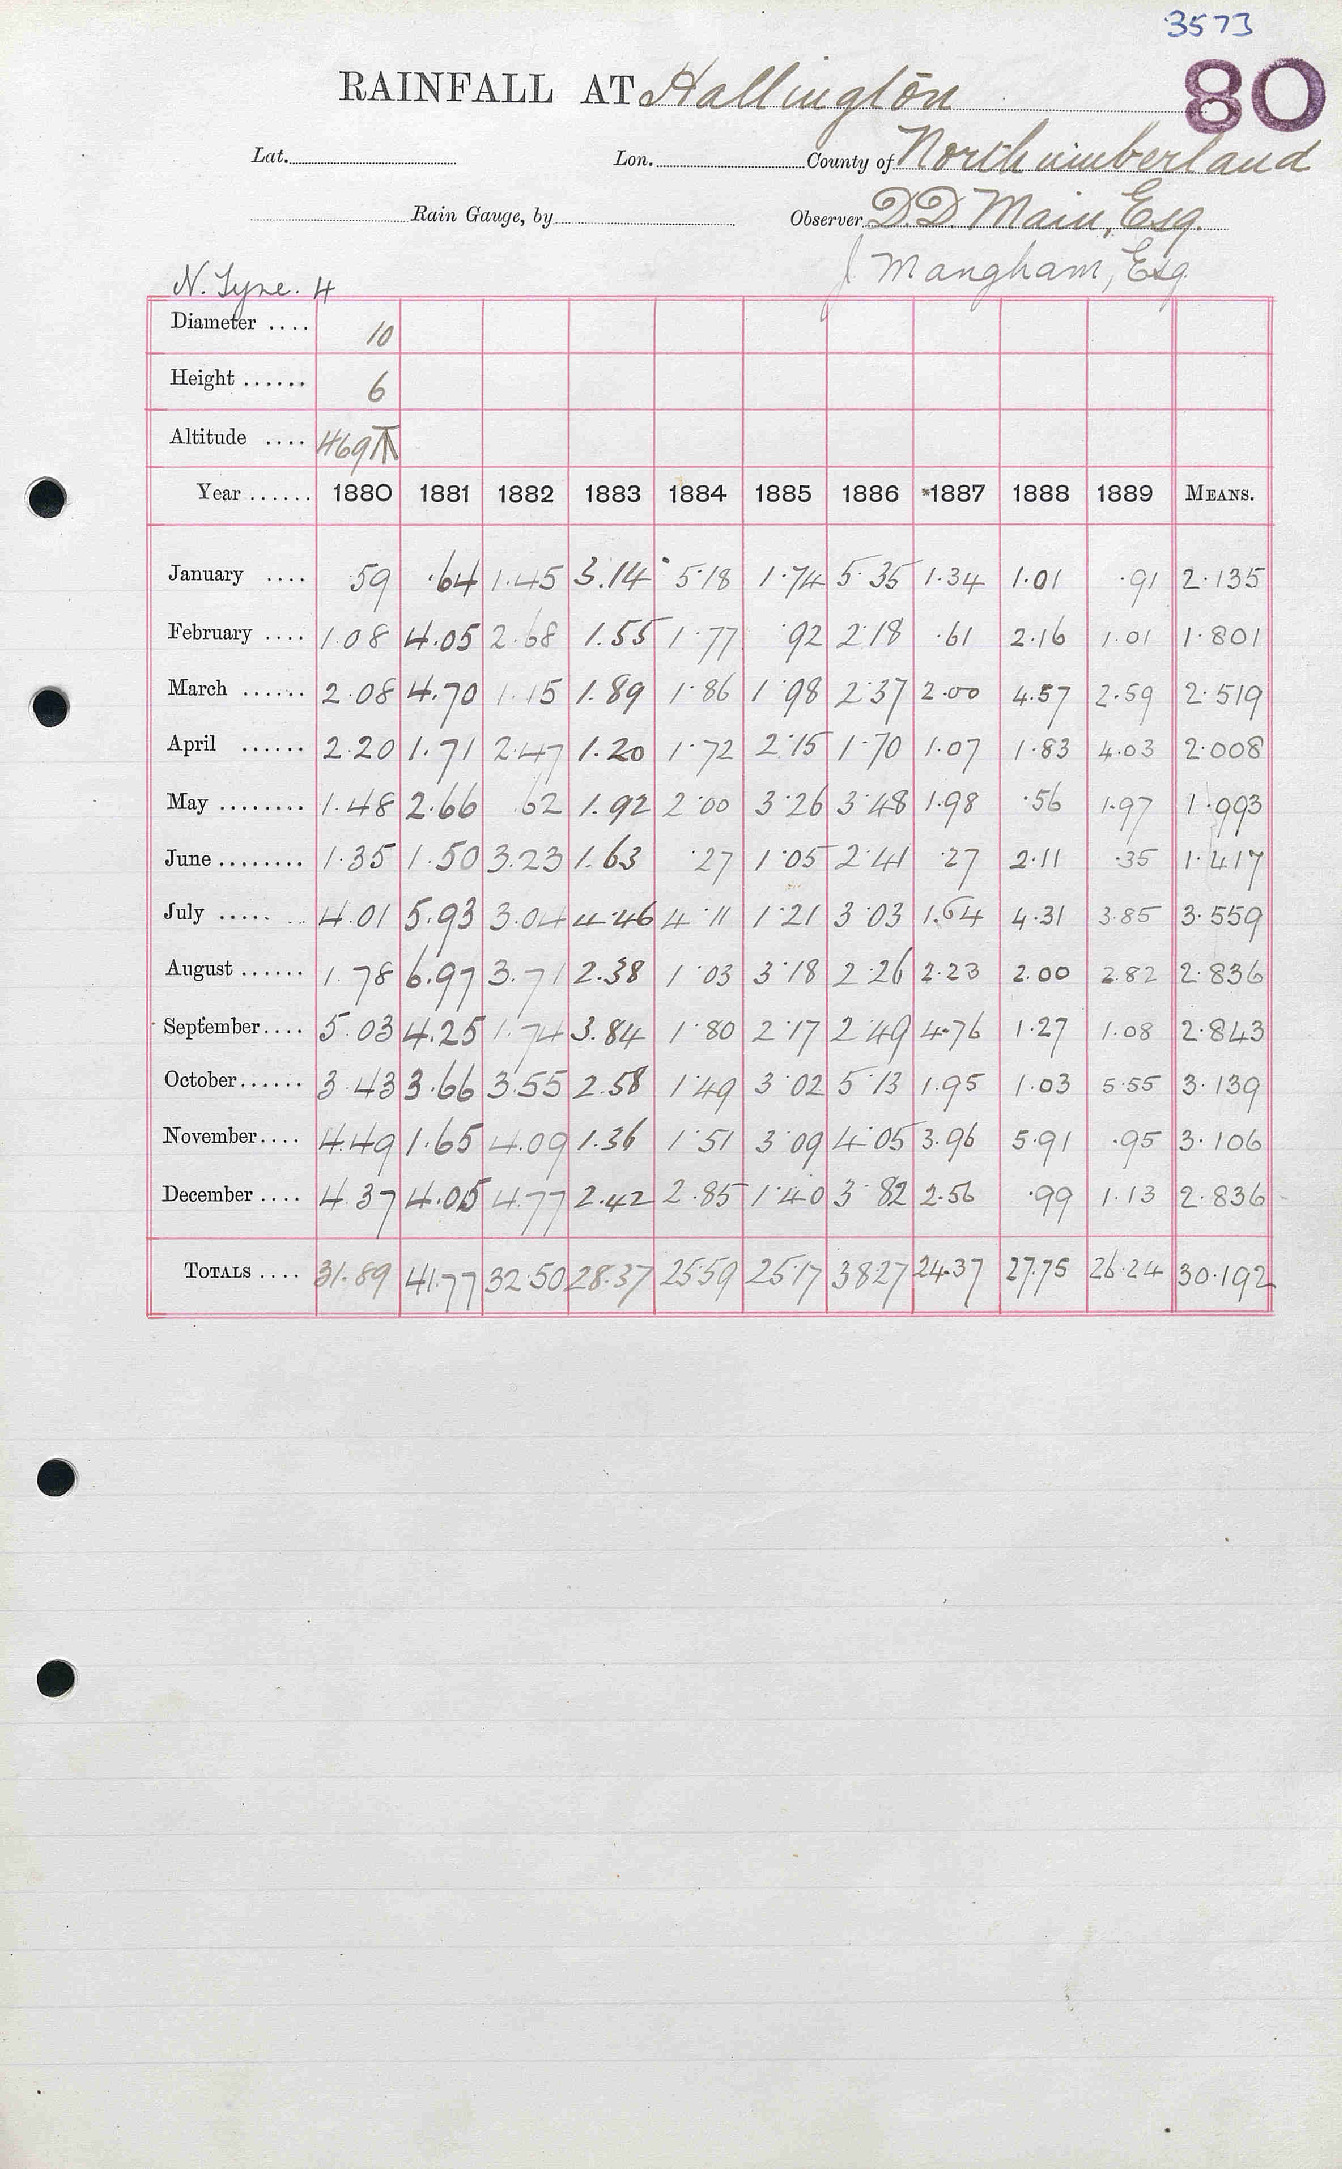 3573
80
RAINFALL AT Hallington
Lat. Lon. County of Northumberland
Rain Gauge, by Observer D.D. Main, Esq.
J Mangham, Esq
N. Tyne. 4
Diameter .... 10
Height ...... 6
Altitude .... 469 T
Year ...... 1880 1881 1882 1883 1884 1885 1886 *1887 1888 1889 MEANS.
January .... 59 .64 1.45 3.14 5.18 1.74 5.35 1.34 1.01 .91 2.135
February .... 1.08 4.05 2.68 1.55 1.77 .92 2.18 .61 2.16 1.01 1.801
March ...... 2.08 4.70 1.15 1.89 1.86 1.98 2.37 2.00 4.57 2.59 2.519
April ...... 2.20 1.71 2.47 1.20 1.72 2.15 1.70 1.07 1.83 4.03 2.008
May ........ 1.48 2.66 62 1.92 2.00 3.26 3.48 1.98 .56 1.97 1.993
June ........ 1.35 1.50 3.23 1.63 .27 1.05 2.41 .27 2.11 .35 1.417
July ..... 4.01 5.93 3.04 4.46 4.11 1.21 3.03 1.64 4.31 3.85 3.559
August ...... 1.78 6.97 3.71 2.38 1.03 3.18 2.26 2.23 2.00 2.82 2.836
September.... 5.03 4.25 1.74 3.84 1.80 2.17 2.49 4.76 1.27 1.08 2.843
October...... 3.43 3.66 3.55 2.58 1.49 3.02 5.13 1.95 1.03 5.55 3.139
November.... 4.49 1.65 4.09 1.36 1.51 3.09 4.05 3.96 5.91 .95 3.106
December .... 4.37 4.05 4.77 2.42 2.85 1.40 3.82 2.56 .99 1.13 2.836
TOTALS .... 31.89 41.77 32.50 28.37 25.59 25.17 38.27 24.37 27.75 26.24 30.192